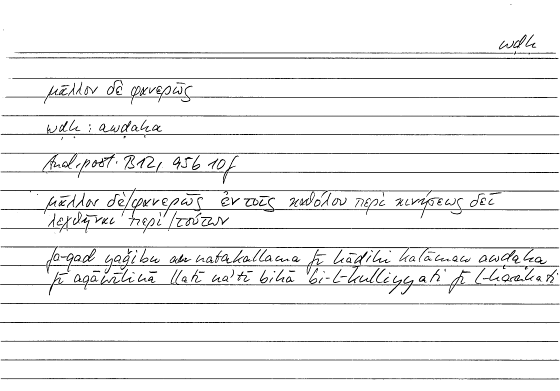 wḍḥ
μᾶλλον δὲ φανερῶς
wḍḥ : awḍaḥa
And.post. B12, 95b 10f
μᾶλλον δὲ/φανερῶς ἐν τοῖς καθόλου περὶ κινήσεως δεῖ
λεχθῆναι περὶ/τούτων
fa-qad yaǧibu an natakallama fī hāḏihi kalāman awḍaḥa
fī aqāwīlinā llatī na'tī bihā bi-l-kulliyyati fī l-ḥarakati